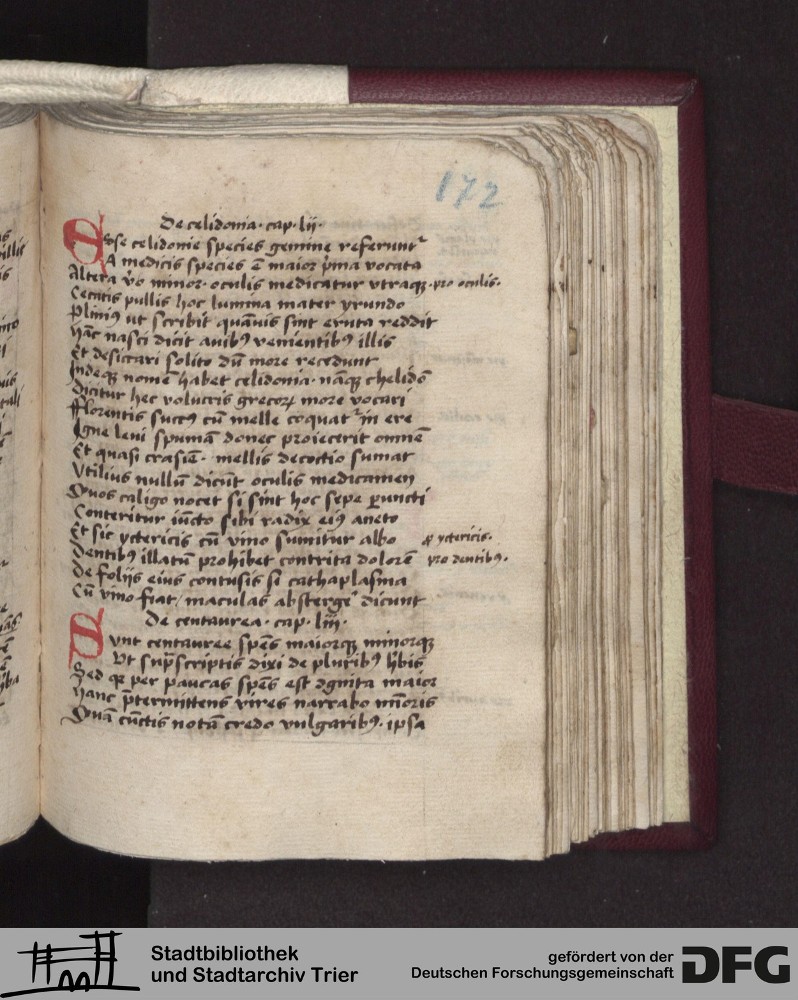 172
De celidonia · cap · lii ·
Esse celidonie species gemine referunt᷑
A medicis species ē maior p̍ma vocata
Altera v̊o minor · oculis medicatur vtraqꝫ · pro oculis ·
Cecatis pullis hoc lumina mater yrundo
Plini⁹ ut scribit quāuis sint eruta reddit
hāc nasci dicit auib⁹ venientib⁹ illis
Et desiccari solito dū more recedunt
Indeqꝫ nomē habet celidonia · nāqꝫ chelidō
Dicitur hec volucris grecoꝝ more vocari
Florentis succ⁹ cū melle coquat᷑ in ere
Igne leui spumā donec proiecerit omnē
Et quasi crasiē · mellis decoctio sumat
Vtilius nullū dicūt oculis medicamen
Quos caligo nocet si sint hoc sepe ꝑuncti
Conteritur iūcto sibi radix ei⁹ aneto
Et sic yctericis cū vino sumitur albo ꝓ yctericis ·
Dentib⁹ illatū prohibet contrita dolorē pro dentib⁹ ·
De folijs eius contusis si cathaplasma
Cū vino fiat / maculas absterge᷑ dicunt
De centaurea · cap · liii ·
Sunt centauree sp̄es maiorqꝫ minorqꝫ
Vt sup̄scriptis dixi de plurib⁹ h̄bis
Sed per paucas sp̄es est cognita maior
hanc p̄termittens vires narrabo mīoris
Quā cūctis notā credo vulgarib⁹ · ipsa
Stadtbibliothek
und Stadtarchiv Trier
gefördert von der
Deutschen Forschungsgemeinschaft
DFG